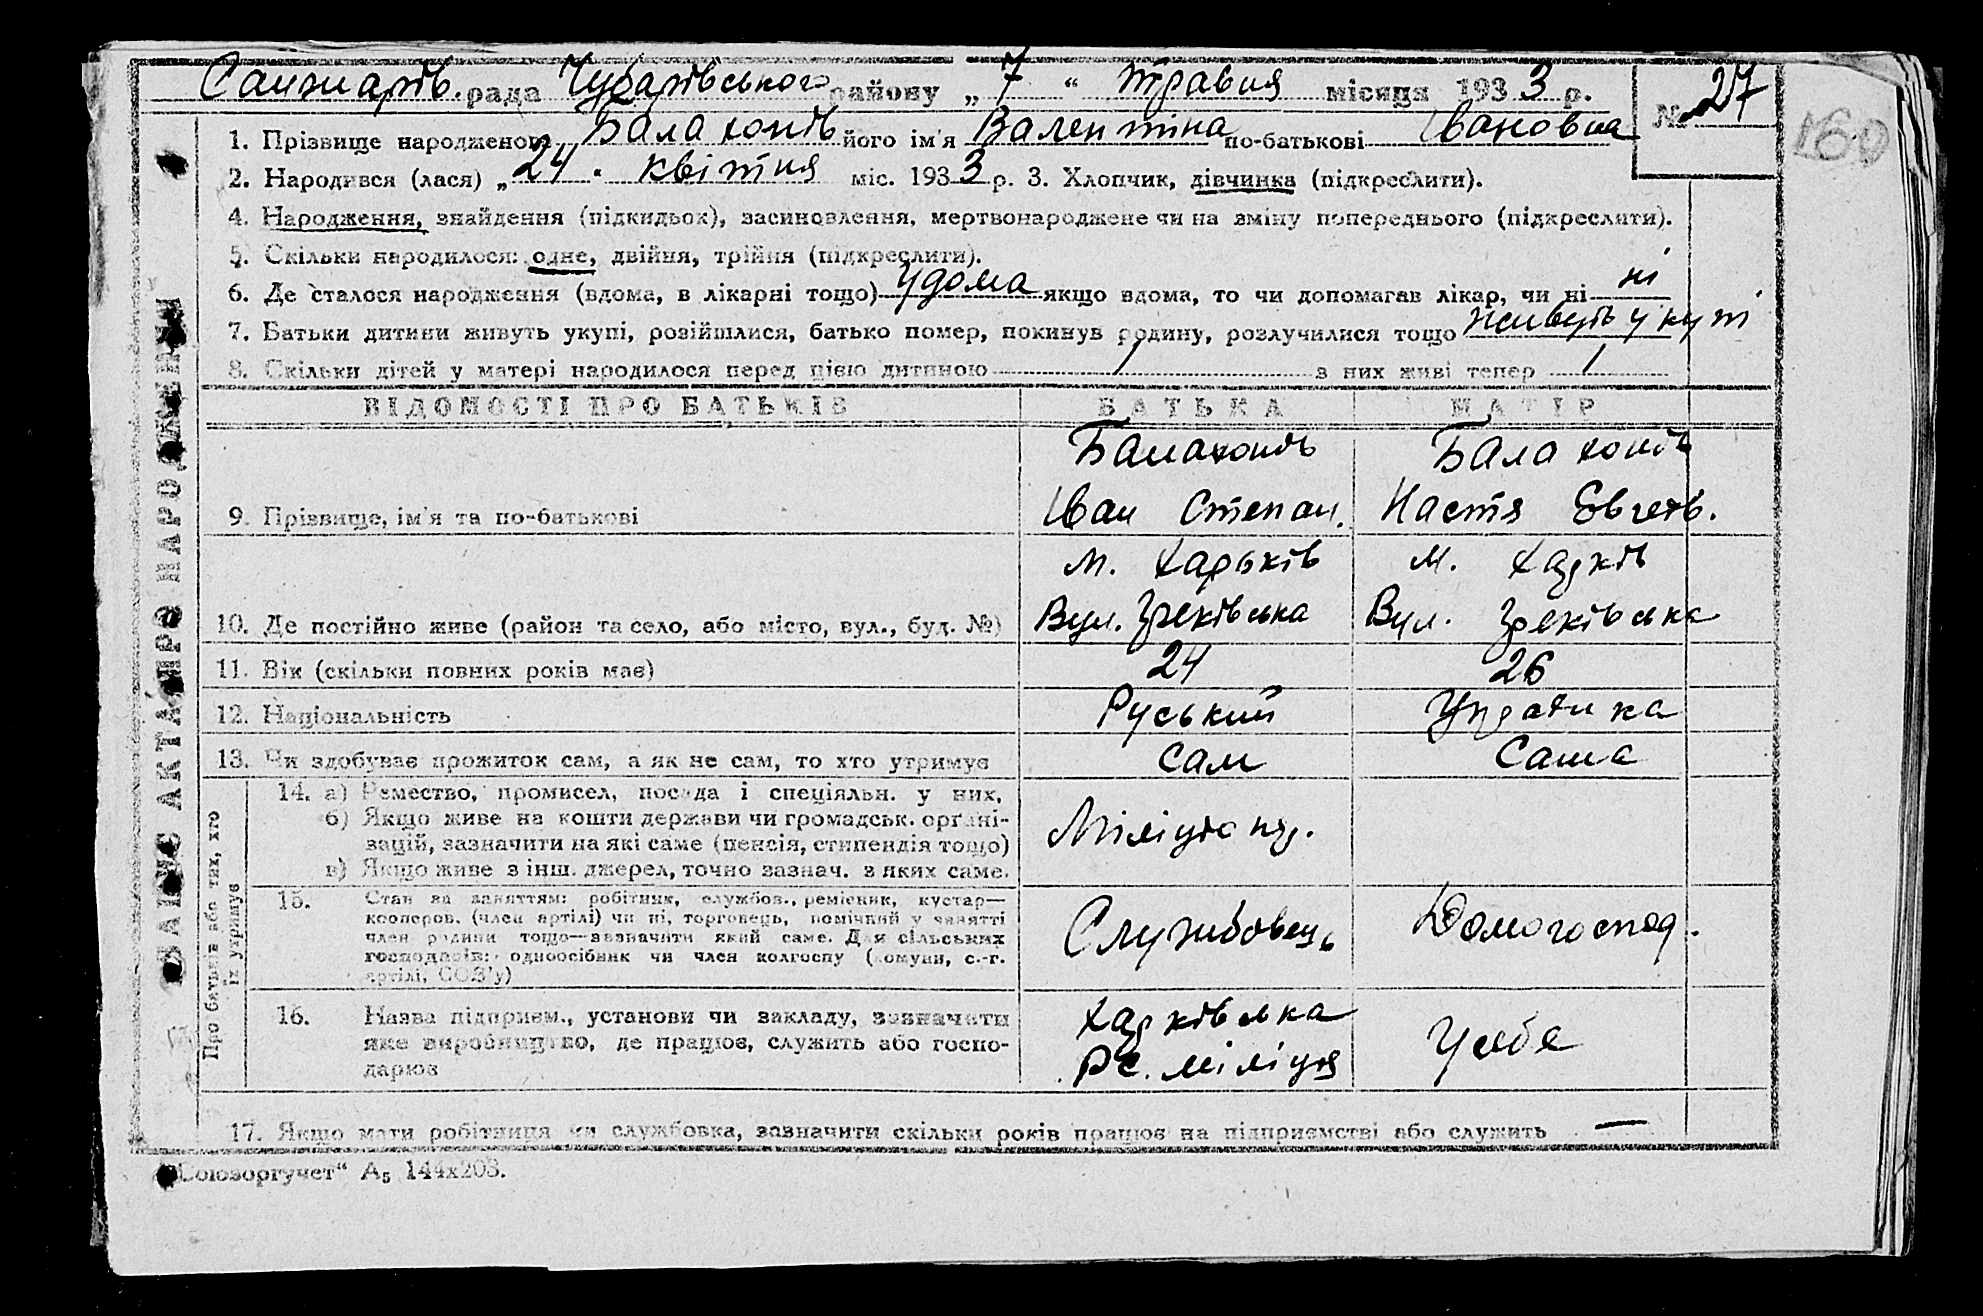 Санжарів. рада Чубарівського району „7“ травня місяця 1933 р.
№ 27
160
1. Прізвище народженого Балахонів його ім'я Валентіна по-батькові Івановна
2. Народився (лася) „24. квітня міс. 1933 р. 3. Хлопчик, дівчинка (підкреслити).
4. Народження, знайдення (підкидьок), засиновлення, мертвонароджене чи на зміну попереднього (підкреслити).
5. Скільки народилося: одне, двійня, трійня (підкреслити).
6. Де сталося народження (вдома, в лікарні тощо) удома якщо вдома, то чи допомагав лікар, чи ні ні
7. Батьки дитини живуть укупі, розійшлися, батько помер, покинув родину, розлучилися тощо живуть укупі
8. Скільки дітей у матері народилося перед цією дитиною 1 з них живі тепер 1
ВІДОМОСТІ ПРО БАТЬКІВ БАТЬКА МАТІР
Балахонів Балахонів
9. Прізвище, ім'я та по-батькові Іван Степан. Настя
м. Харьків м. Харків
10. Де постійно живе (район та село, або місто, вул., буд. №) Вул. Вул.
11. Вік (скільки повних років має) 24 26
12. Національність Руський Українка
13. Чи здобуває прожиток сам, а як не сам, то хто утримує сам сама
Про батьків або тих, хто їх утримує
14. а) Ремество, промисел, посада і спеціяльн. у них,
б) Якщо живе на кошти держави чи громадськ. органі-
зацій, зазначити на які саме (пенсія, стипендія тощо)
в) Якщо живе з інш. джерел, точно зазнач. з яких саме.
Міліціонер.
15. Стан за заняттям: робітник, службов., ремісник, кустар—
кооперов. (член артілі) чи ні, торговець, помічний у занятті
член родини тощо—зазначити який саме. Для сільських
господарів: одноосібник чи член колгоспу (комуни, с.-г.
артілі, СОЗ'у)
Службовець Домогоспод.
16. Назва підприєм., установи чи закладу, зазначати
яке виробництво, де працює, служить або госпо-
дарює
Харківська
Рс. міліція
У себе
17. Якщо мати робітниця чи службовка, зазначити скільки років працює на підприємстві або служить —
„Союзоргучет“ А₅ 144х203.
ЗАПИС АКТА ПРО НАРОДЖЕННЯ